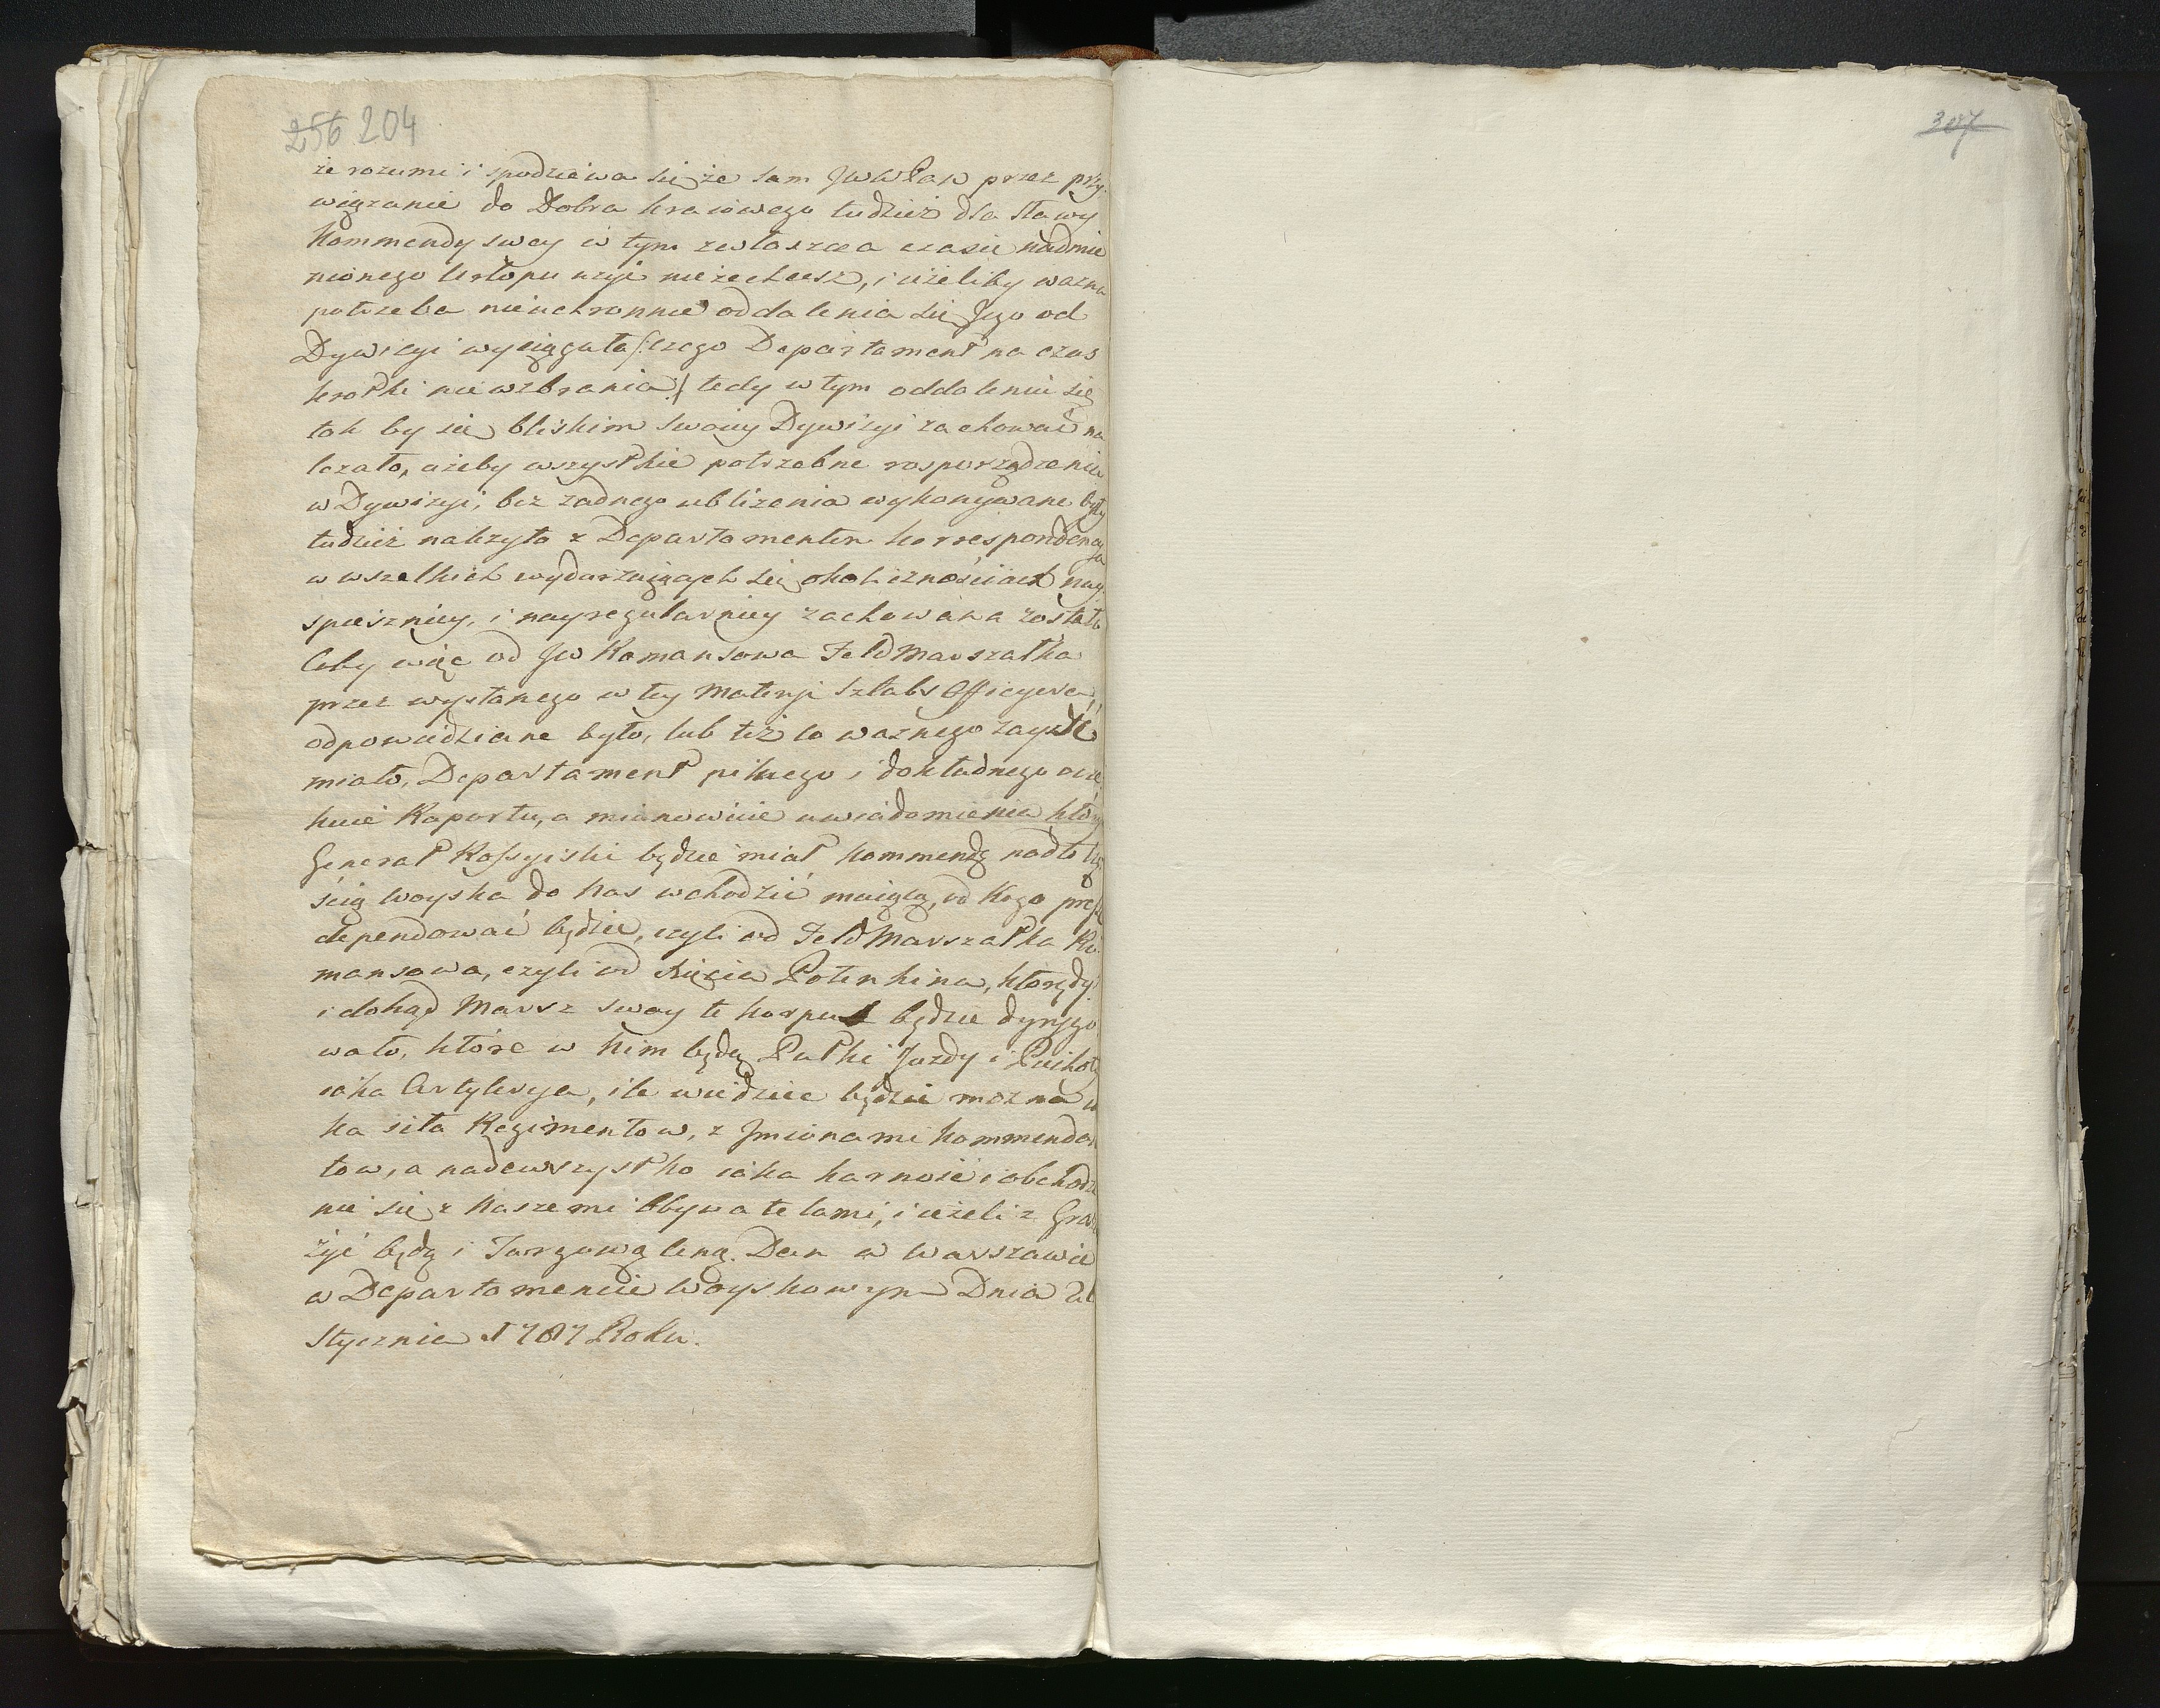 256 204
307
że rozumie i spodziewa się że sam JWWPan przez przy-
wiązanie do Dobra kraiowego tudzież dla sławy
Kommendy swey w tym zwłaszcza czasie nadmie
nionego Urlopu użyć nie zechcesz, i ieżeliby ważna
potrzeba nieuchronnie oddalenia się Jego od
Dywizyi wyciągała /: czego Departament na czas
krotki nie wzbrania :/ tedy w tym oddaleniu się
tak by się bliskim swoiey Dywizyi zachować na
lezało, ażeby wszystkie potrzebne rosporządzenia
w Dywizyi, bez zadnego ubliżenia wykonywane były
tudzież należyta z Departamentem korrespondencya
w wszelkich wydarzaiących się okolicznościach nay-
spieszniey, i nayregularniey zachowana została
Coby więc od JW Romansowa FeldMarszałka
przez wysłanego w tey Materyi Sztabs Officyera,
odpowiedziane było, lub też co ważnego zayść
miało, Departament pilnego i dokładnego ocze
kuie Raportu, a mianowicie uwiadomienia który
Generał Rossyiski będzie miał kommendę nad tą czę
ścią woyska do Nas wchodzić maiącą, od Kogo
dependować będzie, czyli od FeldMarszałka Ro-
mansowa, czyli od Xięcia Potemkina, którędy
i dokąd Marsz swoy te korpus będzie dyrygo
wało, które w Nim będą Pułki Jazdy i Piechoty
iaka Artylerya, ile wiedzieć będzie można
ka siła Regimentow, z Jmionami kommendan
tow, a nadewszystko iaka karność i obchodze
nie się z Naszemi Obywatelami, i ieżeli z
żyć będą i Targową ceną. Dan w Warszawie
w Departamencie Woyskowym Dnia
Stycznia 1787 Roku.